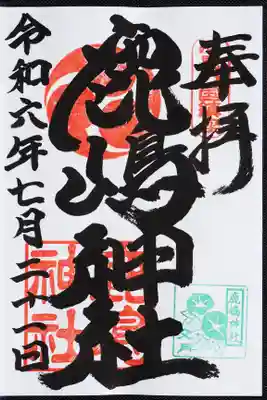 奉拝
鹿嶋神社
令和六年七月二十一日
鹿嶋神社